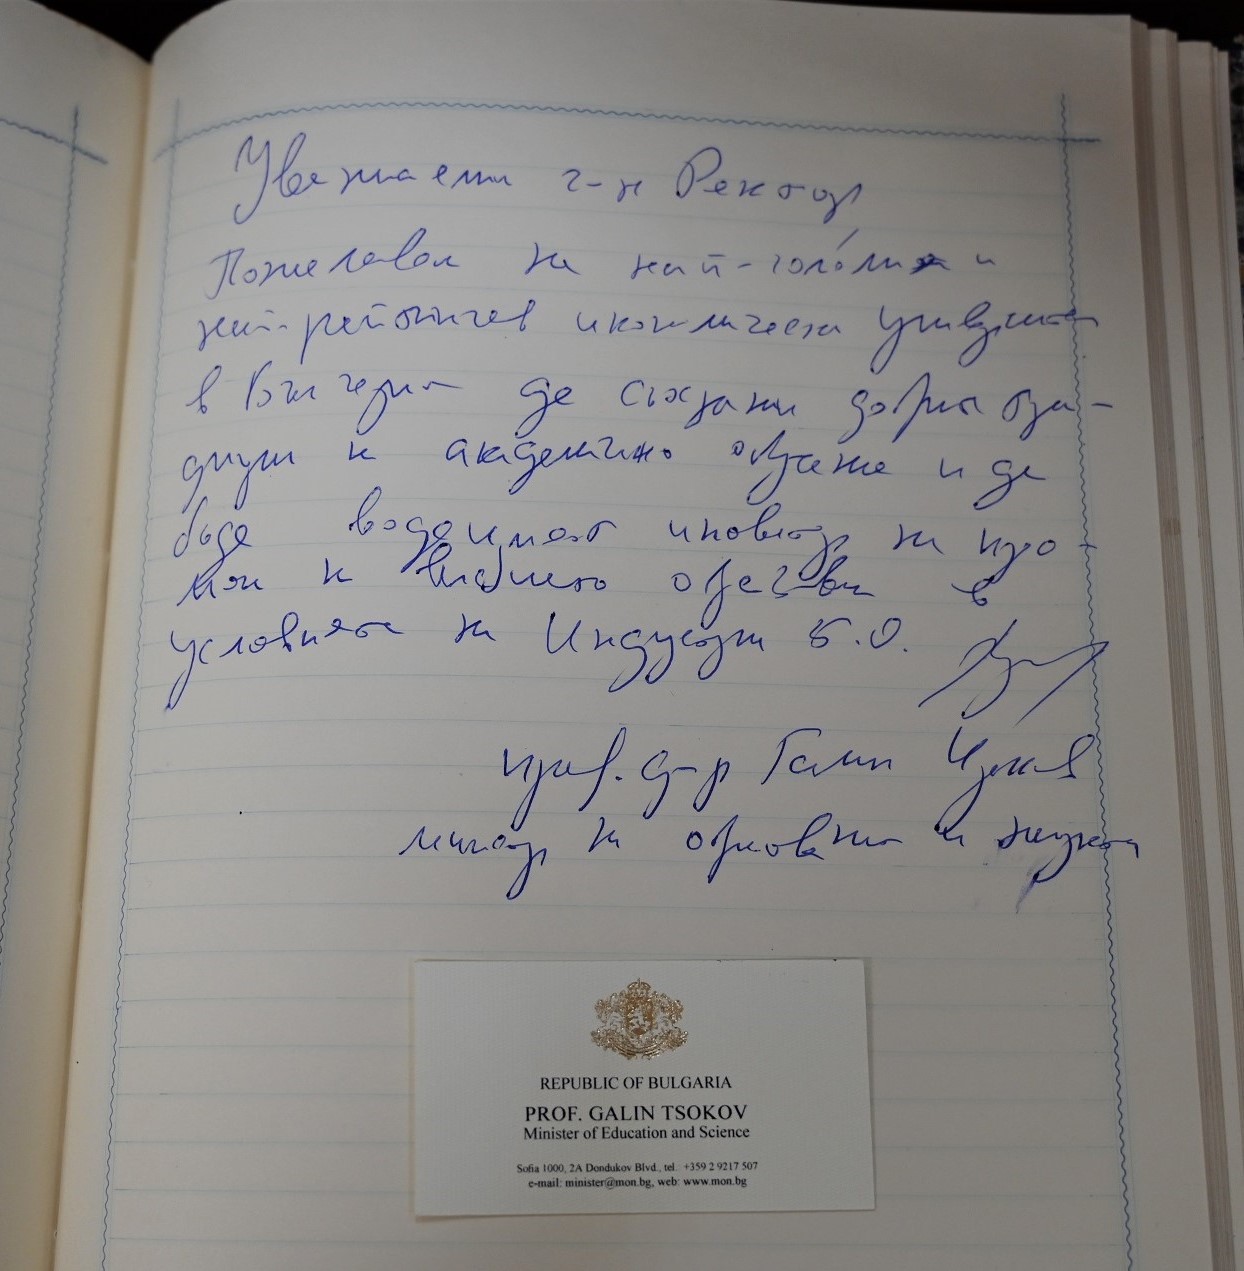 Уважаеми г-н Ректор
Пожелавам на най-големия и
най-рейтингов икономически университет
в България да съхрани добрите тра-
диции на академично образование и да
бъде водещият иноватор на про-
на висшето образование в
условията на Индустрия 5.0.
проф. д-р Галин Цоков
министър на образованието и науката
REPUBLIC OF BULGARIA
PROF. GALIN TSOKOV
Minister of Education and Science
Sofia 1000, 2A Dondukov Blvd., tel. +359 2 9217 507
e-mail: minister@mon.bg, web: www.mon.bg